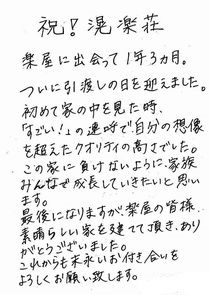 祝!滉楽荘
楽屋に出会って1年3ヵ月。
ついに引渡しの日を迎えました。
初めて家の中を見た時、
「すごい!」の連呼で、自分の想像
を超えたクオリティの高さでした。
この家に負けないように、家族
みんなで成長していきたいと思い
ます。
最後になりますが、楽屋の皆様、
素晴らしい家を建てて頂き、あり
がとうございました。
これからも末永いお付き合いを
よろしくお願い致します。